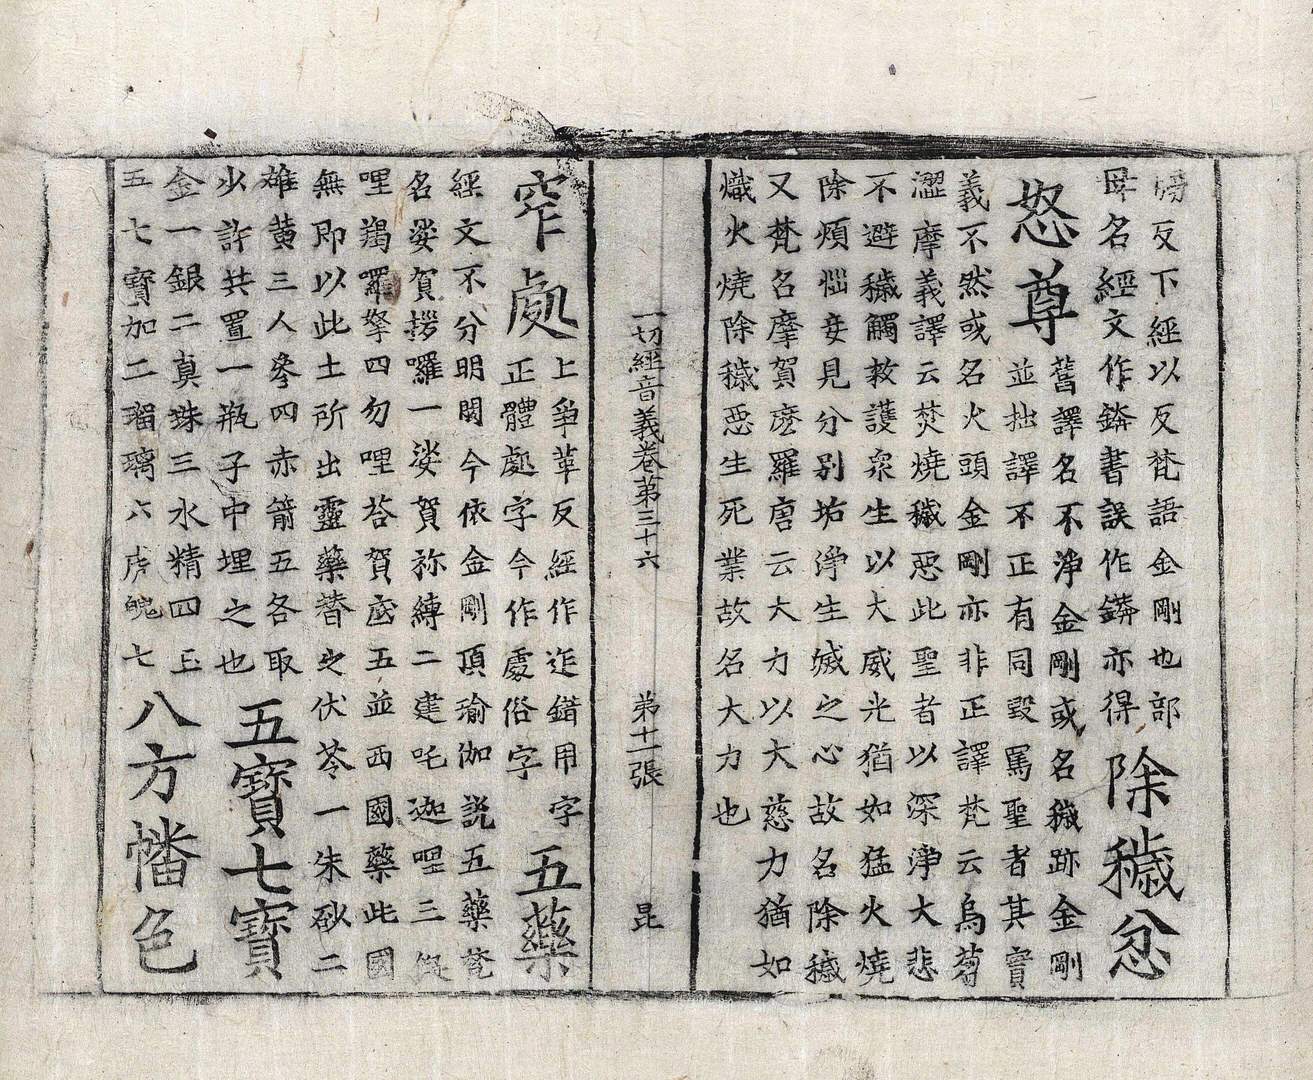 牓反下經以反梵語金剛也部
母名經文作錛書誤作鏻亦得除穢忿
怒尊舊譯名不淨金剛或名穢跡金剛
並拙譯不正有同毀罵聖者其實
義不然或名火頭金剛亦非正譯梵云烏蒭
澀摩義譯云焚燒穢惡此聖者以深淨大悲
不避穢觸救護衆生以大威光猶如猛火燒
除煩惱妄見分別垢淨生滅之心故名除穢
又梵名摩賀麽羅唐云大力以大慈力猶如
熾火燒除穢惡生死業故名大力也
一切經音義卷第三十六 第十一張 昆
窄處上爭革反經作迮錯用字五藥
正體處字今作處俗字
經文不分明閱今依金剛頂瑜伽説五藥梵
名娑賀拶囉一娑賀祢縛二建吒迦哩三儗
哩羯囉拏四勿哩荅賀底五並西國藥此國
無即以此土所出靈藥替之伏苓一朱砂二
雄黄三人參四赤箭五各取五寶七寶
少許共置一瓶子中埋之也
金一銀二真珠三水精四玉
五七寶加二瑠璃六虎魄七八方幡色